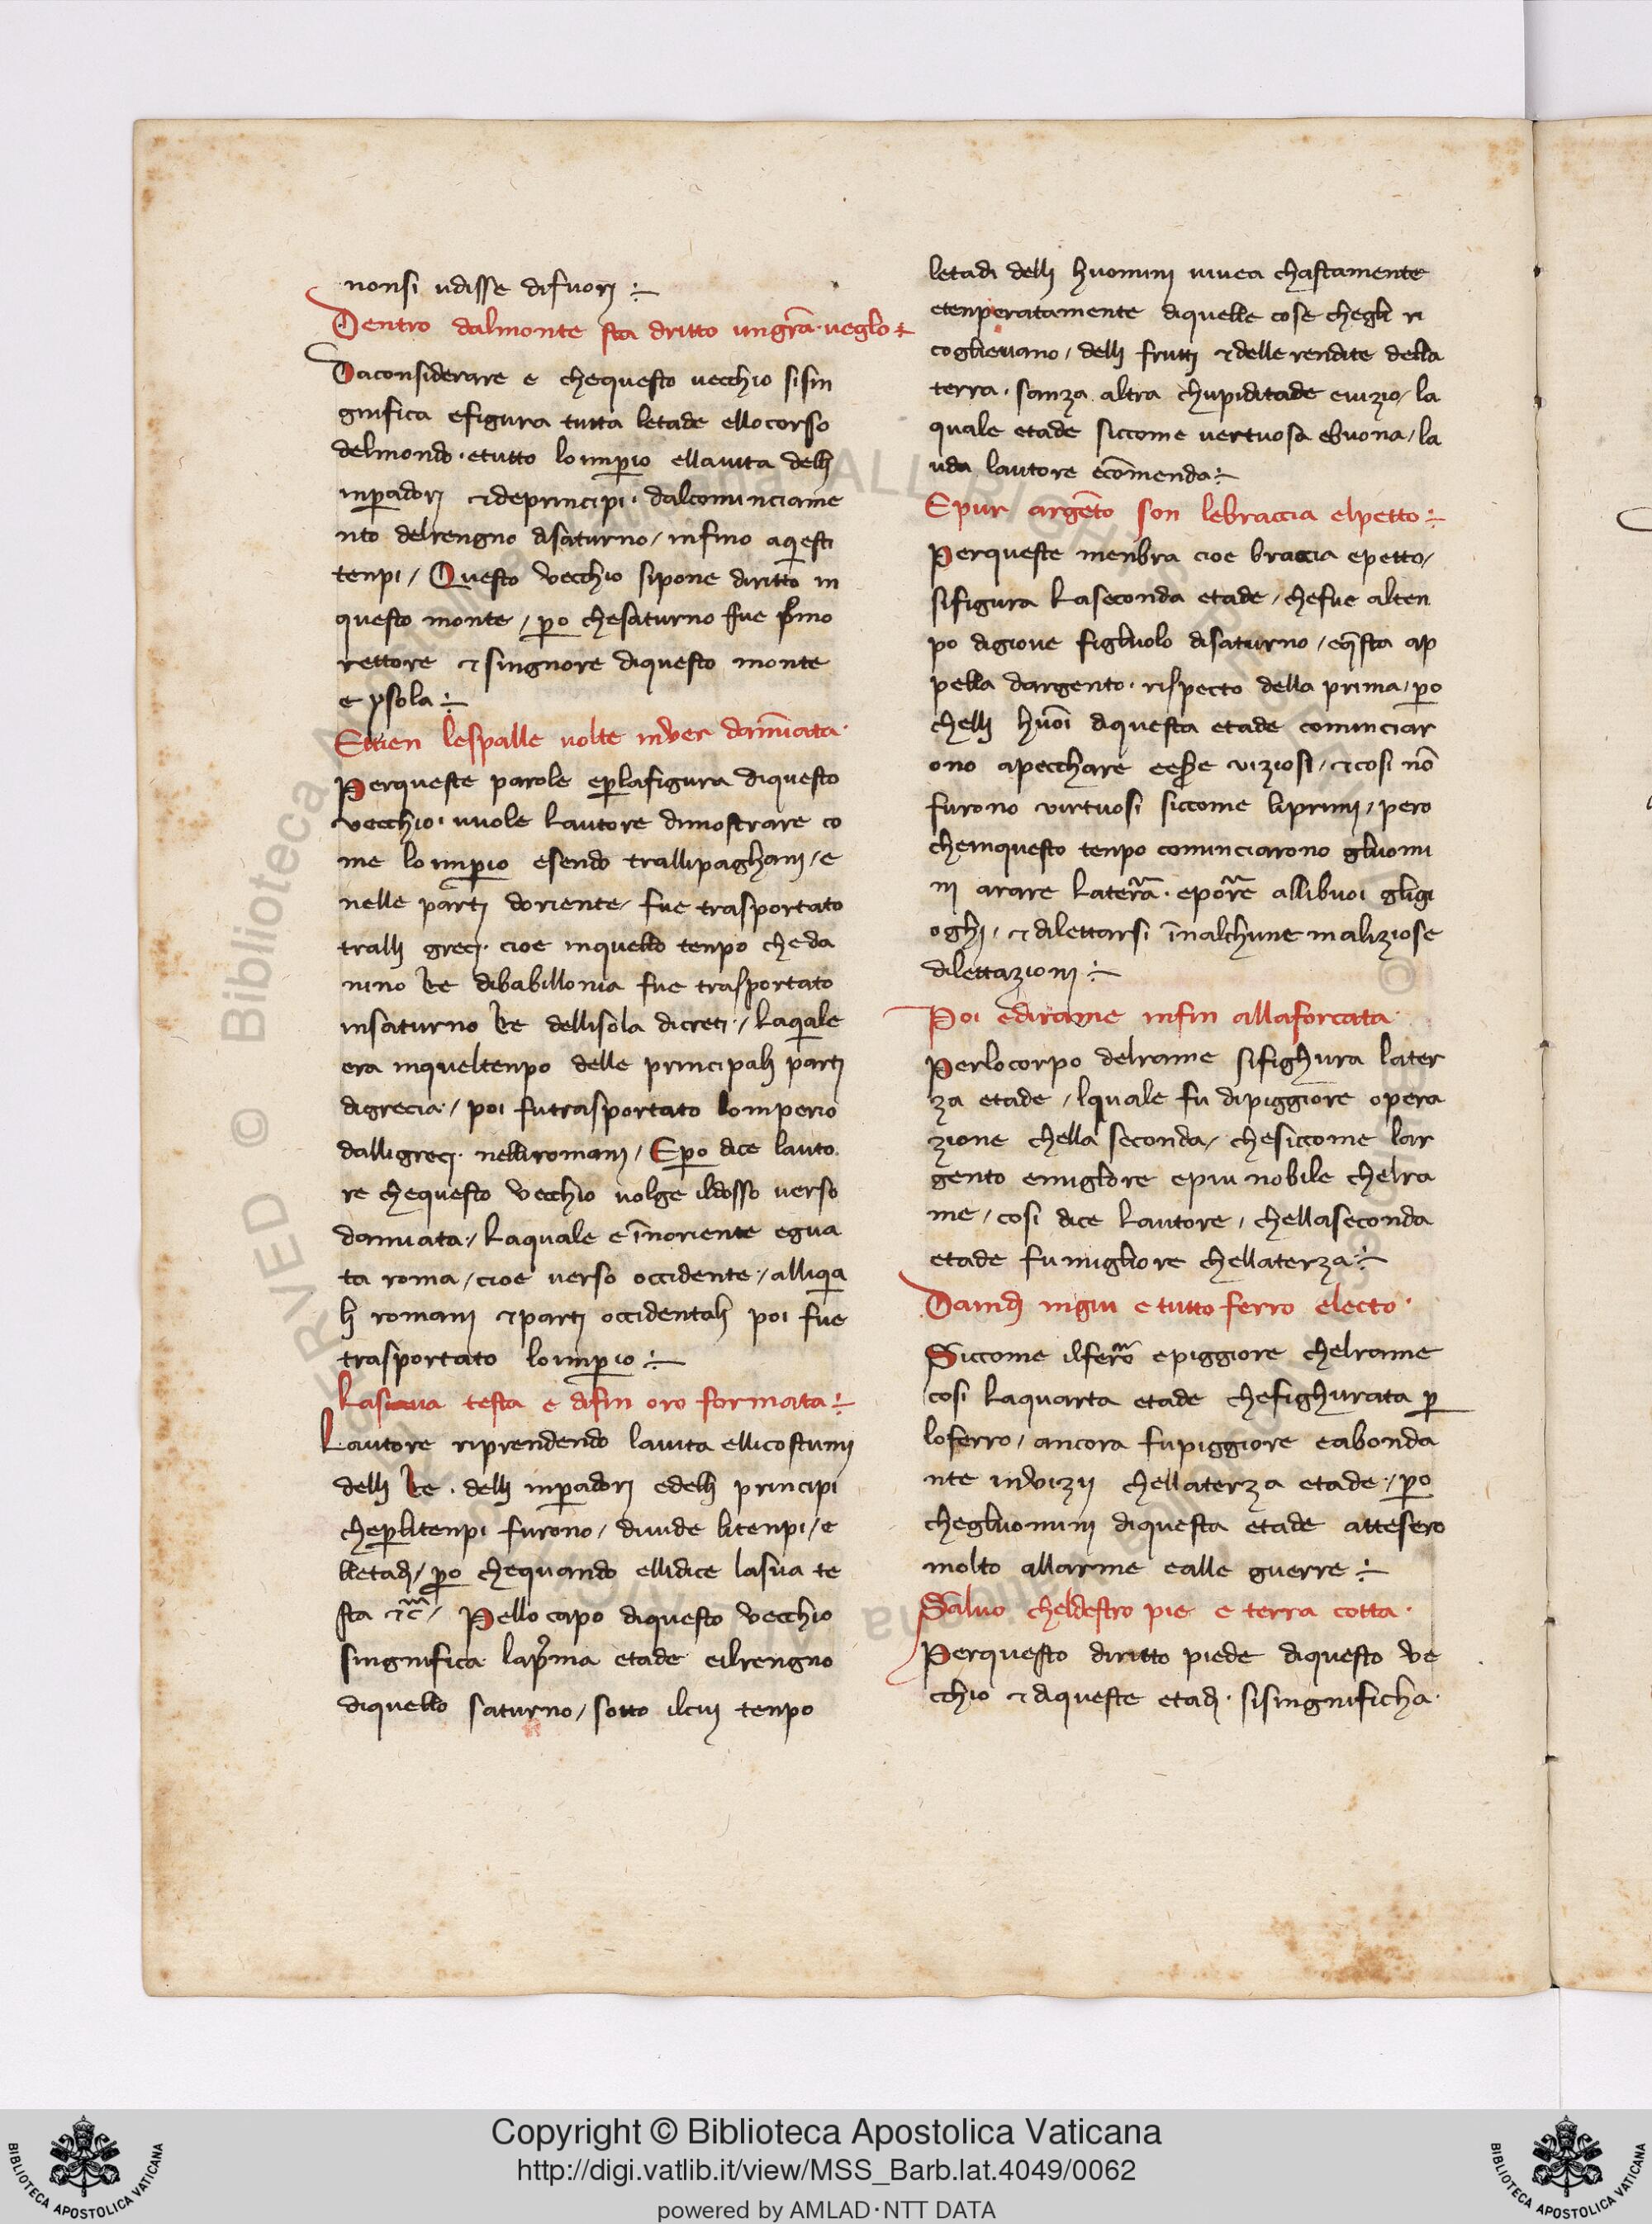 nonsi udisse difuorj :–
Dentro dalmonte sta dritto ungrã· ueglo :–
Daconsiderare e chequesto uecchio sisin
gnifica efigura tutta letade ellocorso
delmondo · etutto lonꝑio ellauita dellj
inꝑadorj ⁊deprincipi · dalcominciame
nto delrengno disaturno / infino aqesti
tenpi / Questo vecchio sipone diritto in
questo monte / ꝑo chesaturno fue pͥmo
rettore ⁊ singnore diquesto monte
e ysola :–
Ettien lespalle uolte inver damiata ·
Perqueste parole eꝑlafigura diquesto
vecchio · uuole Lautore dimostrare co
me lo inꝑio esendo trallipaghanj / e
nelle partj doriente / fue trasportato
trallj grecj · cioe inquello tenpo cheda
nino Re dibabillonia fue trasportato
insaturno Re dellisola dicreti · / Laqale
era inqueltenpo delle principalj partj
digrecia · / poi futrasportato lomperio
dalligrecj · nelliromanj / Eꝑo dice lauto
re chequesto vecchio uolge ildosso uerso
damiata · / Laquale e īnoriente egua
ta roma / cioe uerso occidente · / alliqa
lj romanj ⁊partj occidentalj poi fue
trasportato lo inꝑio :–
Lasua testa e difin oro formata :–
Lautore riprendendo lauita ellicostumj
dellj Re · dellj inꝑadorj edellj principi
cheꝑlitenpi furono / diuide litenpi / e
lletadj / ꝑo chequando ellidice lasua te
sta ⁊c̃ / Pello capo diquesto vecchio
singnifica lapͥma etade eilrengno
diquello saturno / sotto ilcuj tenpo
letadi dellj huominj uiuea chastamente
etenperatamente diquelle cose chegli ri
coglieuano / dellj fruttj ⁊delle rendite della
terra · sanza altra chupiditade euizio / la
quale etade siccome uertuosa ebuona / la
uda lautore ecōmenda :–
Epur argēto son lebraccia elpetto :–
Perqueste menbra cioe braccia epetto /
sifigura Laseconda etade / chefue alten
po digioue figliuolo disaturno / eq̄sta ap
pella dargento · rispecto della prima / ꝑo
chellj huōi diquesta etade cominciar
ono apecchare eeẜe uiziosi / ⁊cosi nō
furono virtuosi siccome liprimj / pero
cheinquesto tenpo cominciarono gliuomi
nj arare Laterr̃a · eporr̃e allibuoi gligi
oghj / ⁊ dilettarsi īnalchune maliziose
dilettazionj :–
Poi edirame infin allaforcata ·
Perlocorpo delrame sifighura later
za etade / lquale fu dipiggiore opera
zione chella seconda / chesiccome lar
gento emigliore epiu nobile chelra
me / cosi dice Lautore / chellaseconda
etade fumigliore chellaterza :–
Daindj ingiu e tutto ferro electo ·
Siccome ilferr̃o epiggiore chelrame
cosi Laquarta etade chefighurata ꝑ
loferro / ancora fupiggiore eabonda
nte invizij chellaterza etade · / ꝑo
chegliuominj diquesta etade attesero
molto allarme ealle guerre :–
Saluo cheldestro pie e terra cotta ·
Perquesto diritto piede diquesto ve
cchio ⁊ diqueste etadj · sisingnificha ·
Copyright © Biblioteca Apostolica Vaticana
http://digi.vatlib.it/view/MSS_Barb.lat.4049/0062
powered by AMLAD·NTT DATA
BIBLIOTECA APOSTOLICA VATICANA
BIBLIOTECA APOSTOLICA VATICANA